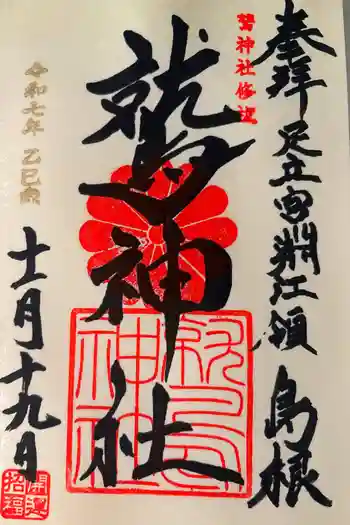 奉拝 足立宮渕江領 島根
鷲神社修󠄁
鷲神社
令和七年 乙巳
十一月十九日
鷲神社
開運招福